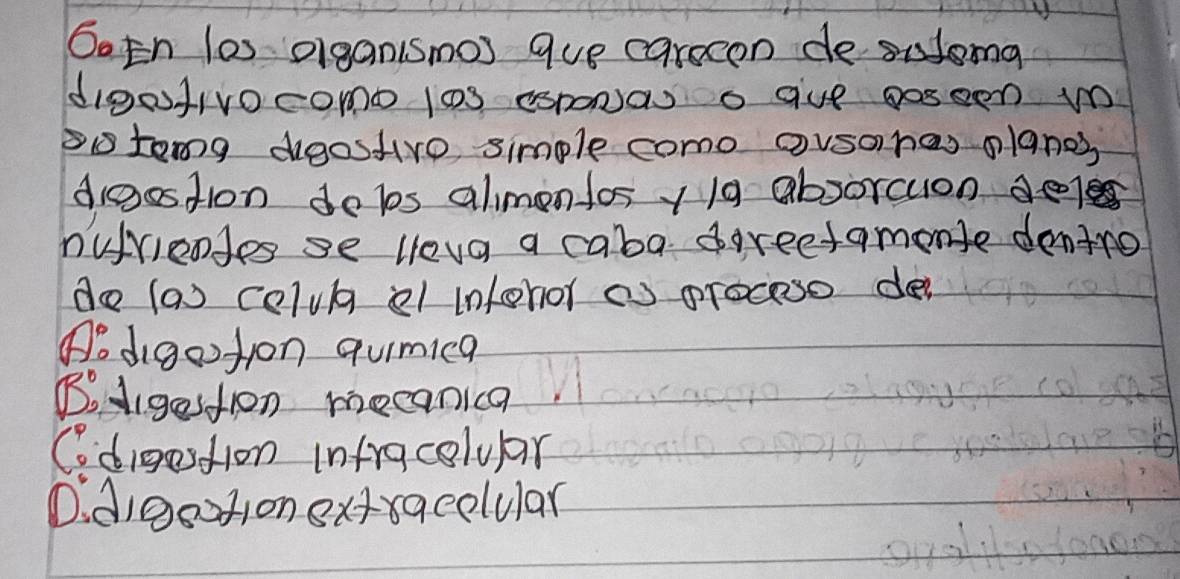 6. En los organismos que carecen de sistema
digestivo como las esponjas o que poseen un
sistema digestivo simple como gusanos planos,
digestion de los alimentos y la absorcion de los
nutrientes se lleva a caba direetamente dentro
de las celula el inferior es proceso de
A. digestion quimica
B. digestion mecanica
C. digestion intracelular
D. digestion extracelular